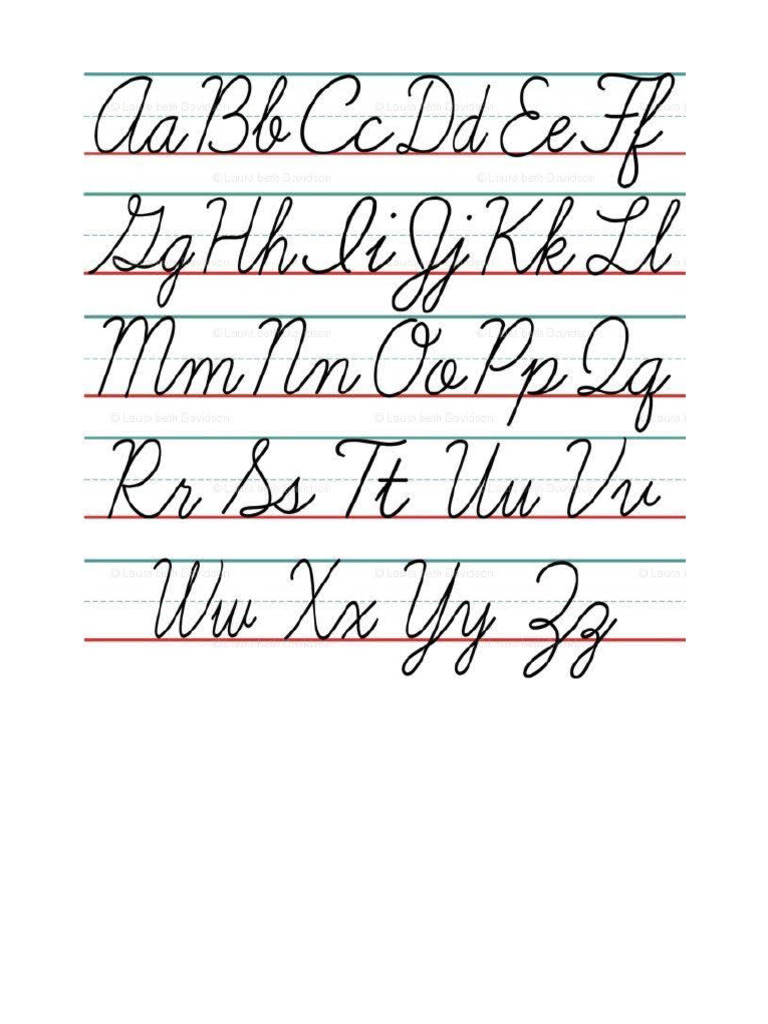 Aa Bb Cc Dd Ee Ff
Gg Hh Ii Jj Kk Ll
Mm Nn Oo Pp Qq
Rr Ss Tt Uu Vv
Ww Xx Yy Zz
© Laura beth Davidson